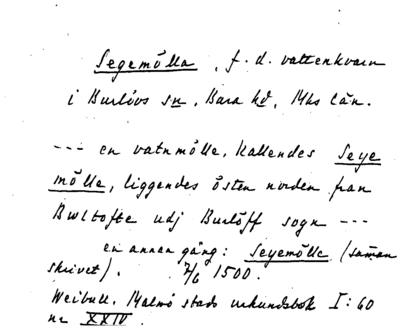 Segemölla, f.d. vattenkvarn
i Burlövs sn, Bara hd, Mhs län.
--- en vatnmölle, kallendes Seye
mölle, liggendes östen norden fran
Bwltofte udj Burlöff sogn ---
en annan gång: Seyemölle (samman
skrivet). 7/6 1500.
Weibull. Malmö stads urkundsbok I:60
nr XXIV.